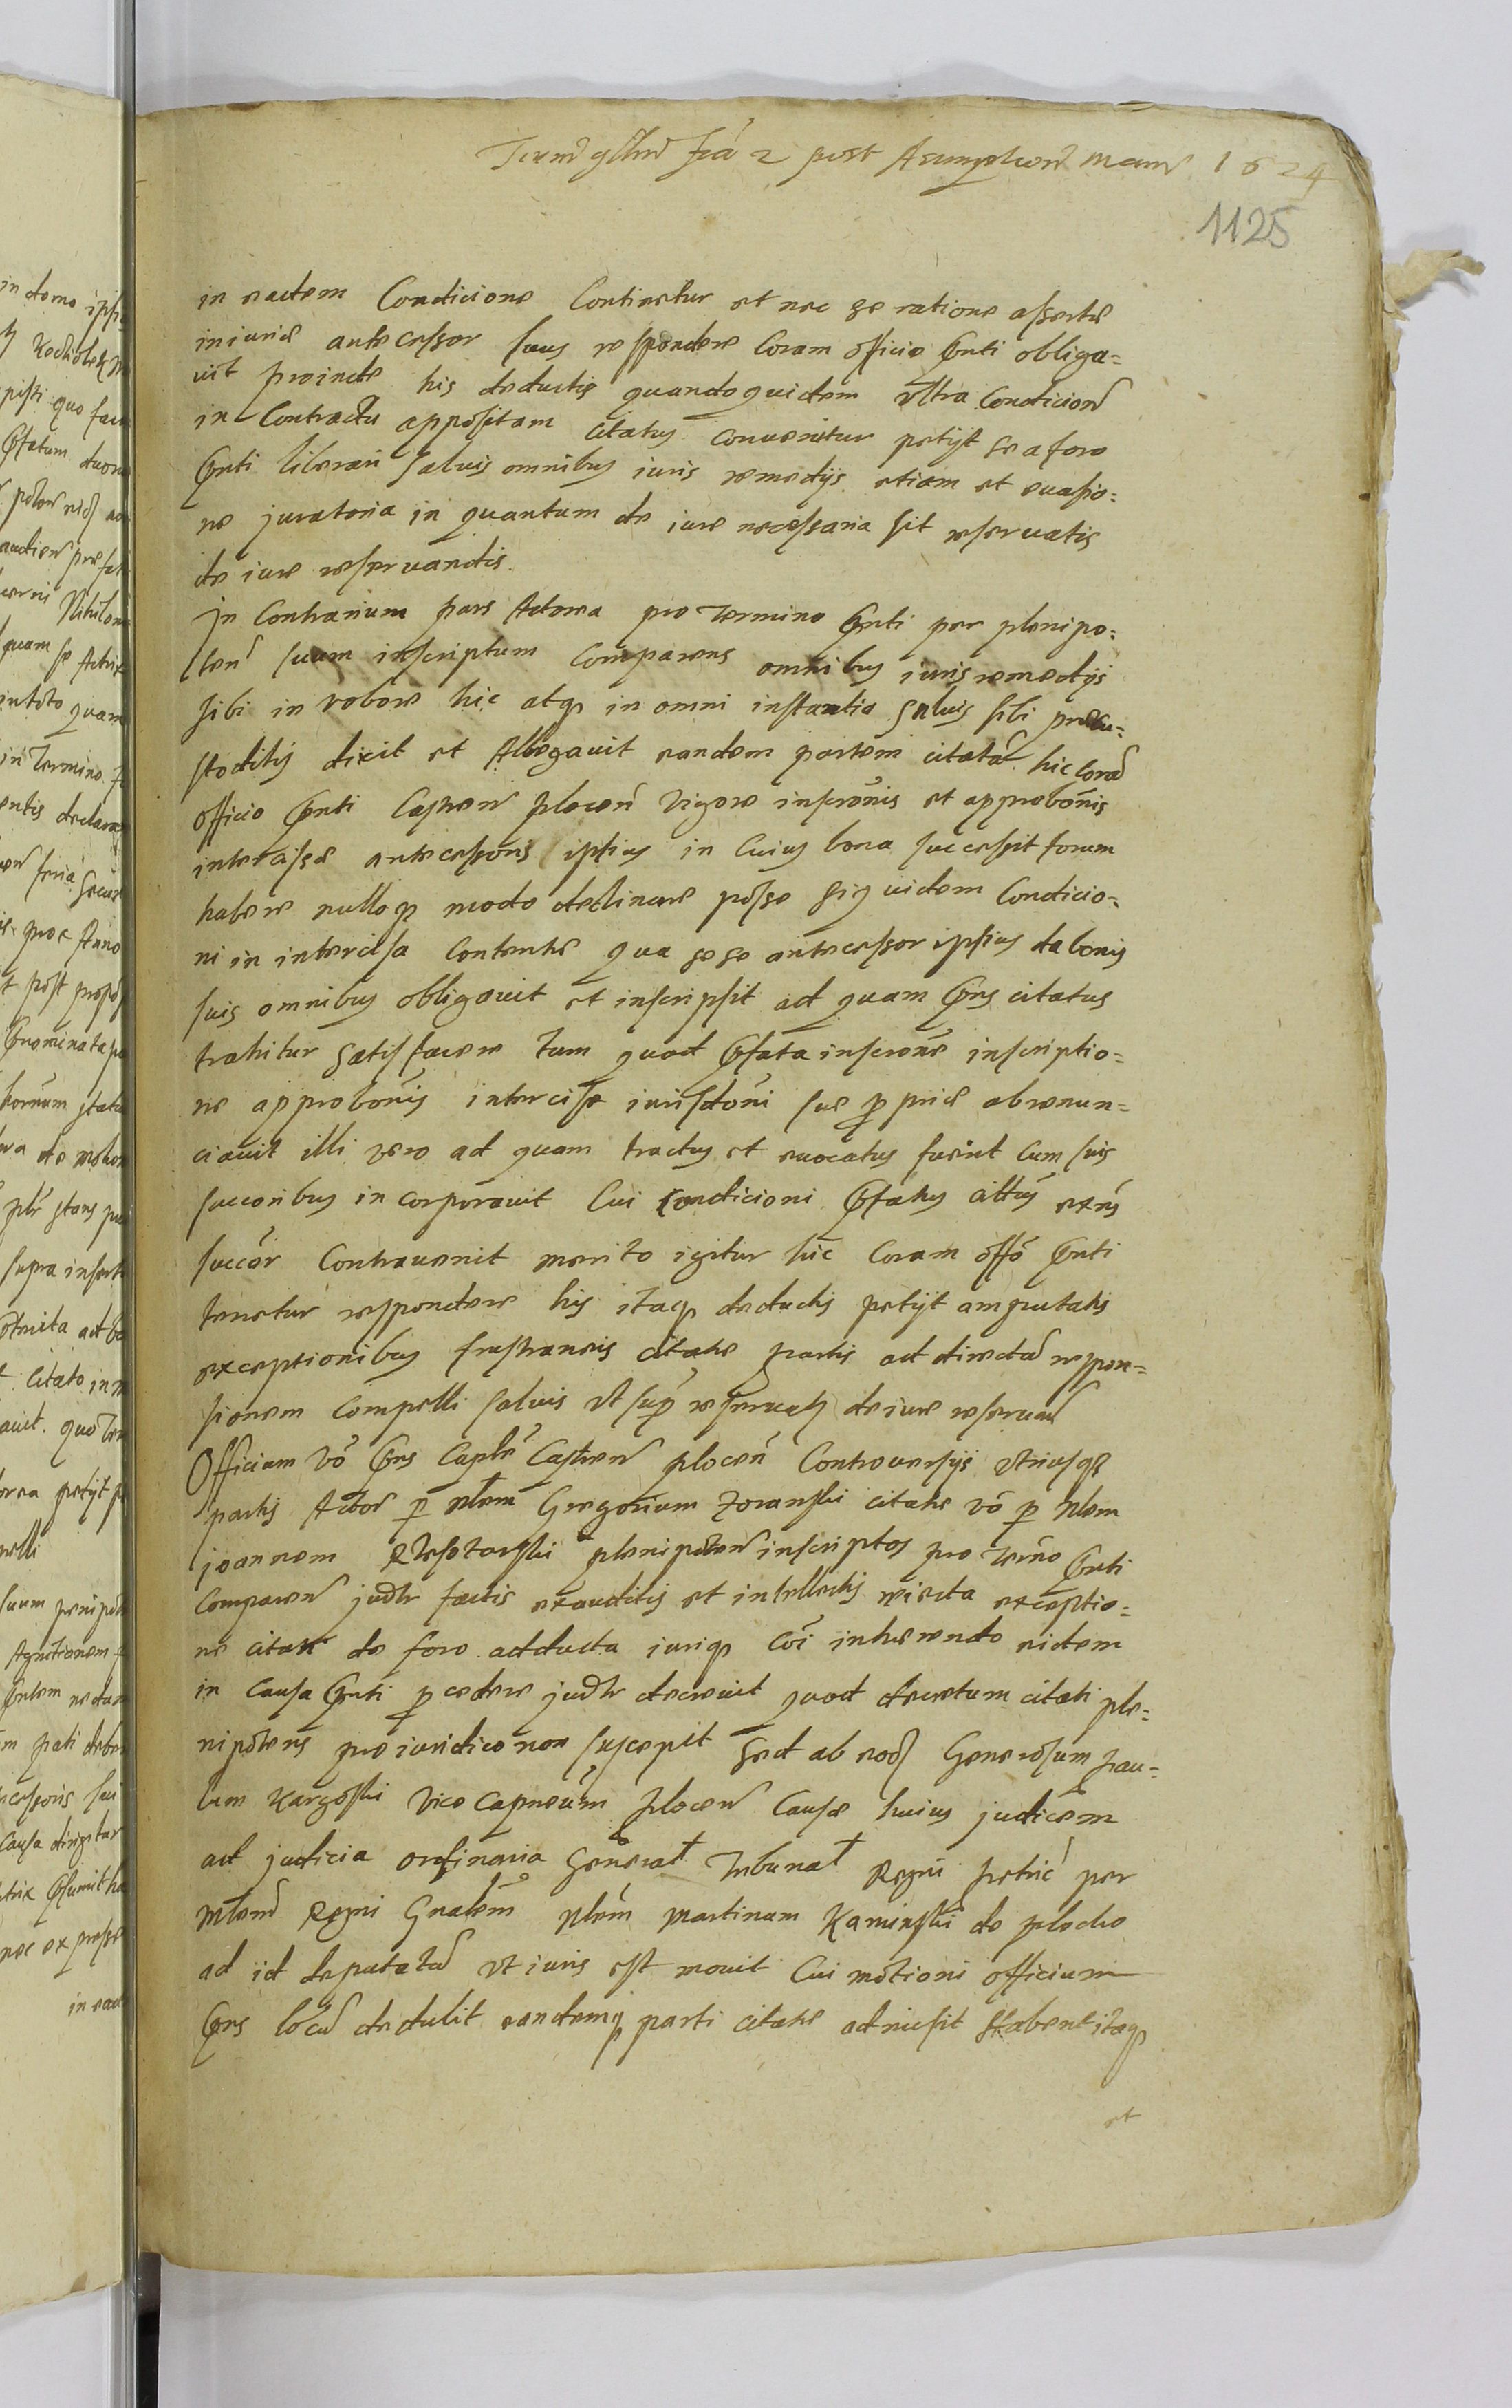 fria 2 post Asumptionem Mariae 1624
1125
in eadem Condicione Continetur et nec se ratione assertae
iniuriae antecessor suus respondere Coram officio Pnti obliga=
vit proinde his deductis quandoquidem vltra Condicionem
in Contractu appositam citatus convenitur petijt se a foro
Pnti liberari salvis omnibus iuris remedijs etiam et evasio=
ne juratoria in quantum de iure necessaria sit reservatis
de iure reservandis
In Contrarium pars Actorea pro termino Pnti per plenipo=
ten suum inscriptum Comparens omnibus iuris remedijs
sibi in robore hic atq in omni instantia salvis sibi praecu=
stoditis dixit et Allegavit eandem partem citatam hic Coram
officio Pnti Castren Plocen vigore inscronis et approbonis
intercisae antecessoris ipsius in Cuius bona successit forum
habere nulloq modo declinare posse siquidem Condicio=
ni in intercisa Contentae qua sese antecessor ipsius da bonis
suis omnibus obligavit et inscripsit ad quam Pns citatus
trahitur satisfacere tum quod Pfata inscrone inscriptio=
ne approbonis intercisae iurisdoni suae ppriae abrenun=
ciavit illi vero ad quam tractus et evocatus fuerit Cum suis
succoribus incorporavit Cui Condicioni Pfatus cittus
succor Contravenit merito igitur hic Coram offo Pnti
tenetur respondere his itaq deductis petijt amputatis
exceptionibus frustraneis citatae partis ad directam respon=
sionem Compelli salvis vt sup reservatis de iure reservan
Officium vo Pns Caple Castren plocen Controversijs vtriusq
partis Actor p Nlem Gregorium Zoranski citatae vo p Nlem
joannem plenipoten inscriptos pro termo Pnti
Comparen judlr factis exauditis et intellectis reiecta exceptio=
ne citati de foro adducta iuriq Coi inhaerendo eidem
in Causa Pnti pcedere judlr decrevit quod decretum citati ple=
nipotens pro iuridico non suscepit sed ab eod Generosum Pau=
lum Kargoski vice Capneum plocen Causae huius judicem
ad judicia ordinaria General Tribunal Regni Petric per
Mlem Regni Gnalem Nlem Martinum Kaminski de plocko
ad id deputatum vt iuris est movit Cui motioni officium
Pns locum dedulit eandemq parti citatae admisit Habent itaq
et